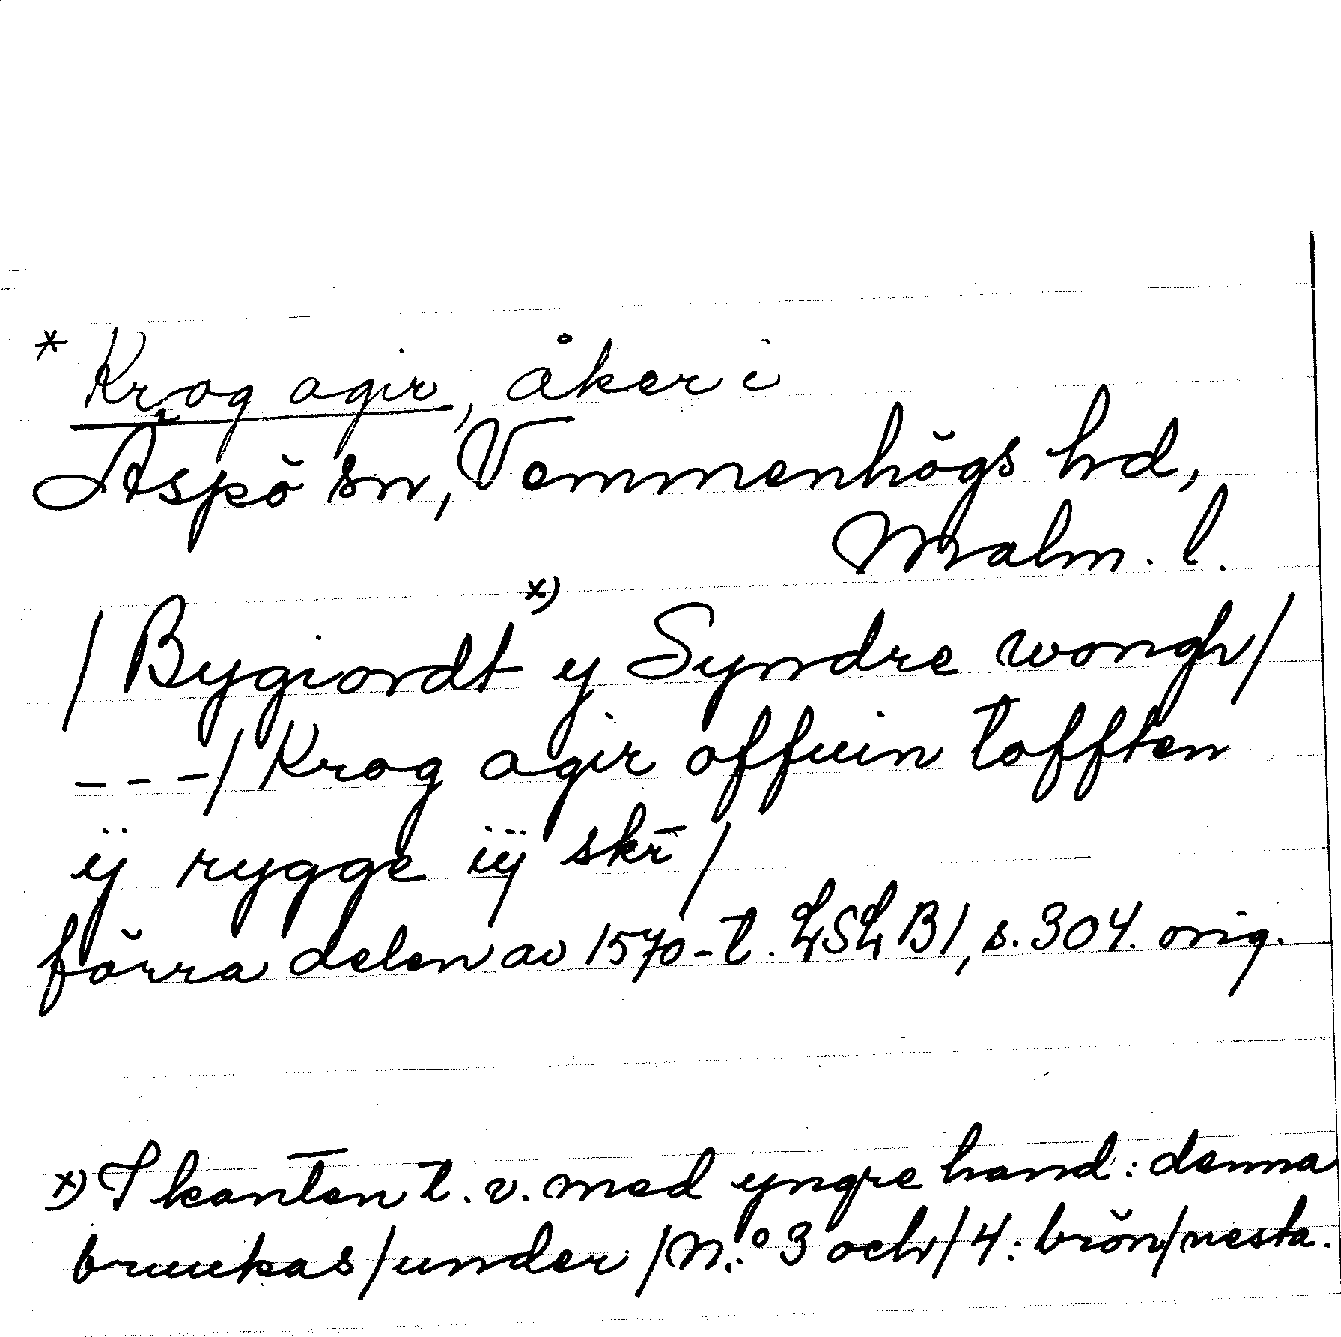 * Krog agir, åker i
Äspö sn, Vemmenhögs hd,
Malm. l.
/ Bygiordt x) y Syndre wongh /
- - -/ Krog agir offuin tofften
ÿ rygge iÿ skr /
förra delen av 1570-t. LSL B1, s. 304. orig.
x) I kanten t. v. med yngre hand: denna
bruukas / under / N:o 3 och / 4: brön / nesta.